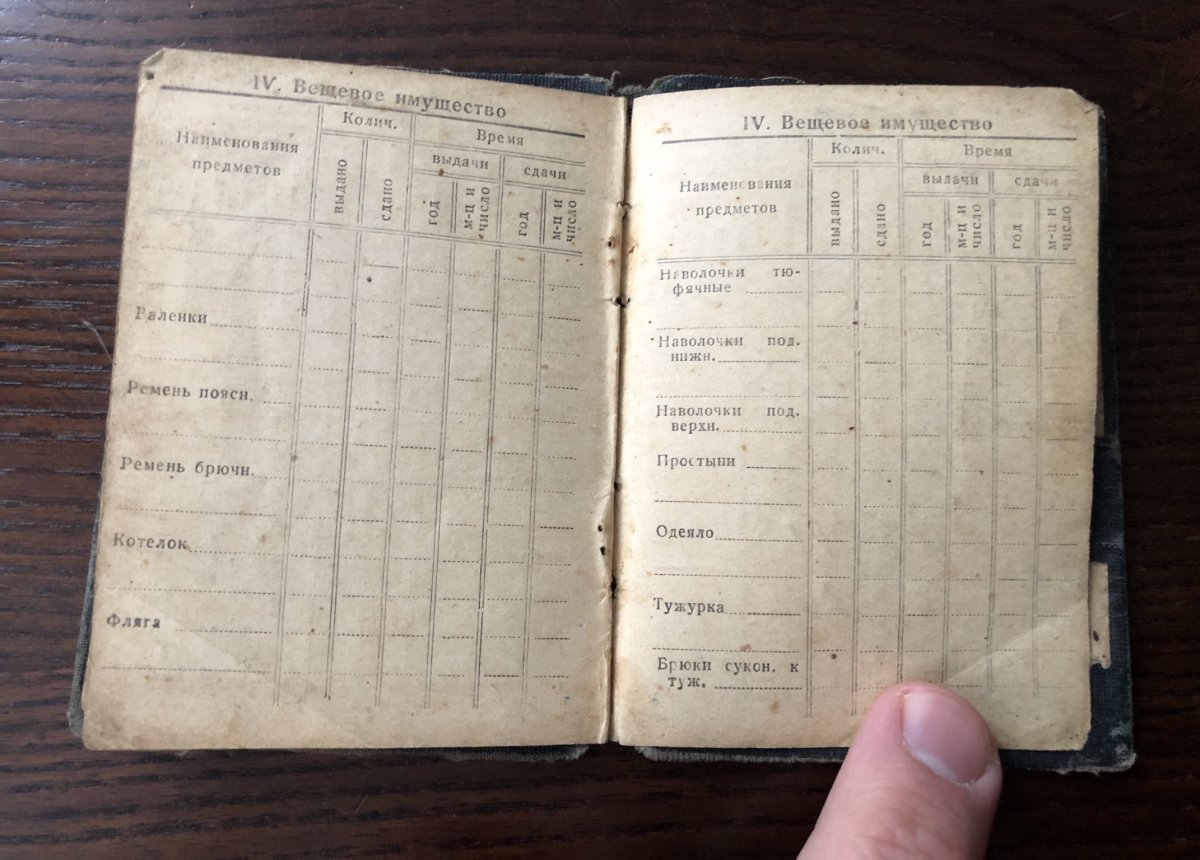 IV. Вещевое имущество
Наименования
предметов
Колич.
выдано
сдано
Время
выдачи
сдачи
год
м-ц и
число
год
м-ц и
число
Валенки
Ремень поясн.
Ремень брючн.
Котелок
Фляга
IV. Вещевое имущество
Наименования
предметов
Колич.
выдано
сдано
Время
выдачи
сдачи
год
м-ц и
число
год
м-ц и
число
Наволочки тю-
фячные
Наволочки под.
нижн.
Наволочки под.
верхн.
Простыни
Одеяло
Тужурка
Брюки сукон. к
туж.